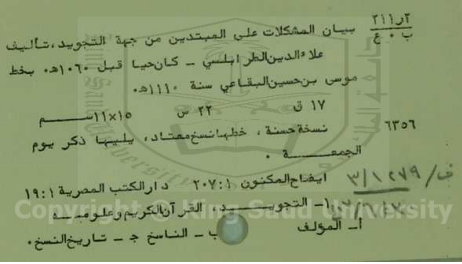 ٢١١٫٢ بيان المشكلات على المبتدين من جهة التجويد، تأليف
ب ٠ ع علاء الدين الطرابلسي - كان حيا قبل ١٠٦٠هـ٠ بخط
موسى بن حسين البقاعي سنة ١١١٠هـ٠
١٧ ق ٢٢ س ١٥×١١ سم
٦٣٥٦ نسخة حسنة، خطها نسخ معتاد، يليها ذكر يوم
الجمعة ٠
ف/ ٣/١٢٧٩ ايضاح المكنون ١: ٢٠٧ دار الكتب المصرية ١: ١٩
١- التجويد، القرآن الكريم وعلومه
أ- المؤلف ب - الناسخ ج - تاريخ النسخ٠
Copyright © King Saud University